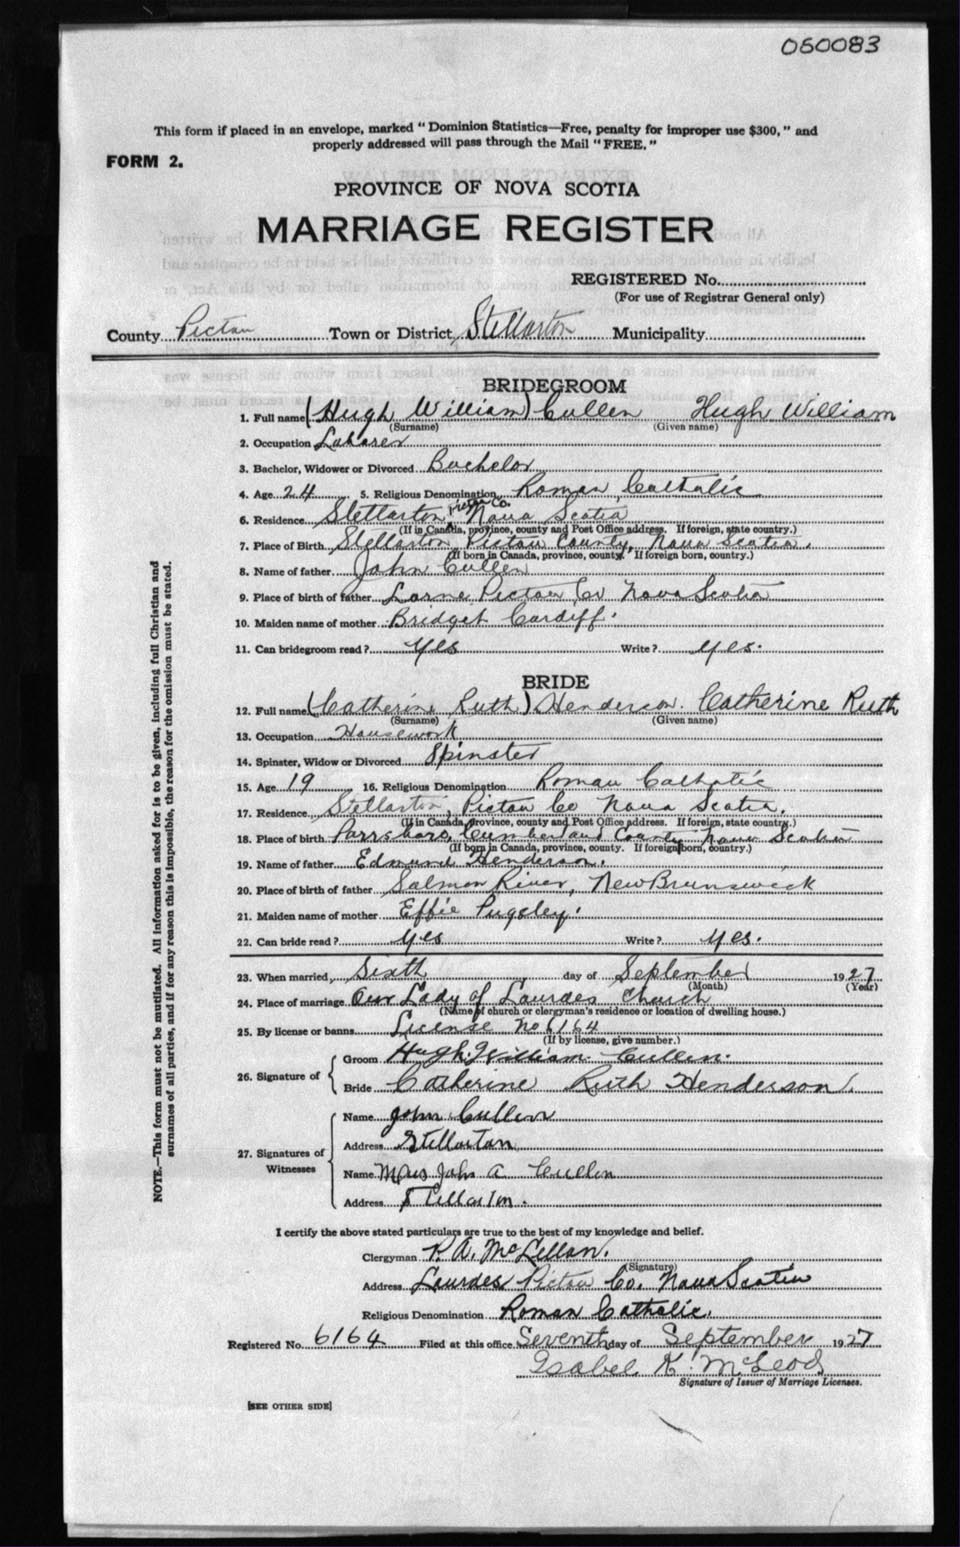 060083
This form if placed in an envelope, marked "Dominion Statistics—Free, penalty for improper use $300," and
properly addressed will pass through the Mail "FREE."
FORM 2.
PROVINCE OF NOVA SCOTIA
MARRIAGE REGISTER
REGISTERED No.
(For use of Registrar General only)
County Pictou Town or District Stellarton Municipality
BRIDEGROOM
1. Full name (Hugh William) Cullen Hugh William
(Surname) (Given name)
2. Occupation Laborer
3. Bachelor, Widower or Divorced Bachelor
4. Age 24 5. Religious Denomination Roman Catholic
6. Residence Stellarton Pictou Co. Nova Scotia
(If in Canada, province, county and Post Office address. If foreign, state country.)
7. Place of Birth Stellarton Pictou County, Nova Scotia.
(If born in Canada, province, county. If foreign born, country.)
8. Name of father John Cullen
9. Place of birth of father Lorne Pictou Co Nova Scotia
10. Maiden name of mother Bridget Cardiff.
11. Can bridegroom read? Yes Write? Yes.
BRIDE
12. Full name (Catherine Ruth) Henderson. Catherine Ruth
(Surname) (Given name)
13. Occupation Housework
14. Spinster, Widow or Divorced Spinster
15. Age 19 16. Religious Denomination Roman Catholic
17. Residence Stellarton, Pictou Co Nova Scotia.
(If in Canada, province, county and Post Office address. If foreign, state country.)
18. Place of birth Parrsboro, Cumberland County Nova Scotia
(If born in Canada, province, county. If foreign born, country.)
19. Name of father Edmund Henderson.
20. Place of birth of father Salmon River, New Brunswick
21. Maiden name of mother Effie Pugsley.
22. Can bride read? Yes Write? Yes.
23. When married, Sixth day of September 1927
(Month) (Year)
24. Place of marriage Our Lady of Lourdes Church
(Name of church or clergyman's residence or location of dwelling house.)
25. By license or banns License No 6164
(If by license, give number.)
26. Signature of { Groom Hugh William Cullen.
Bride Catherine Ruth Henderson.
27. Signatures of Witnesses { Name John Cullen
Address Stellarton
Name Mrs John A Cullen
Address Stellarton.
I certify the above stated particulars are true to the best of my knowledge and belief.
Clergyman R. A. McLellan.
(Signature)
Address Lourdes Pictou Co. Nova Scotia
Religious Denomination Roman Catholic.
Registered No. 6164 Filed at this office Seventh day of September 1927
Isabel K. McLeod
Signature of Issuer of Marriage Licenses.
[SEE OTHER SIDE]
NOTE.—This form must not be mutilated. All information asked for is to be given, including full Christian and
surnames of all parties, and if for any reason this is impossible, the reason for the omission must be stated.